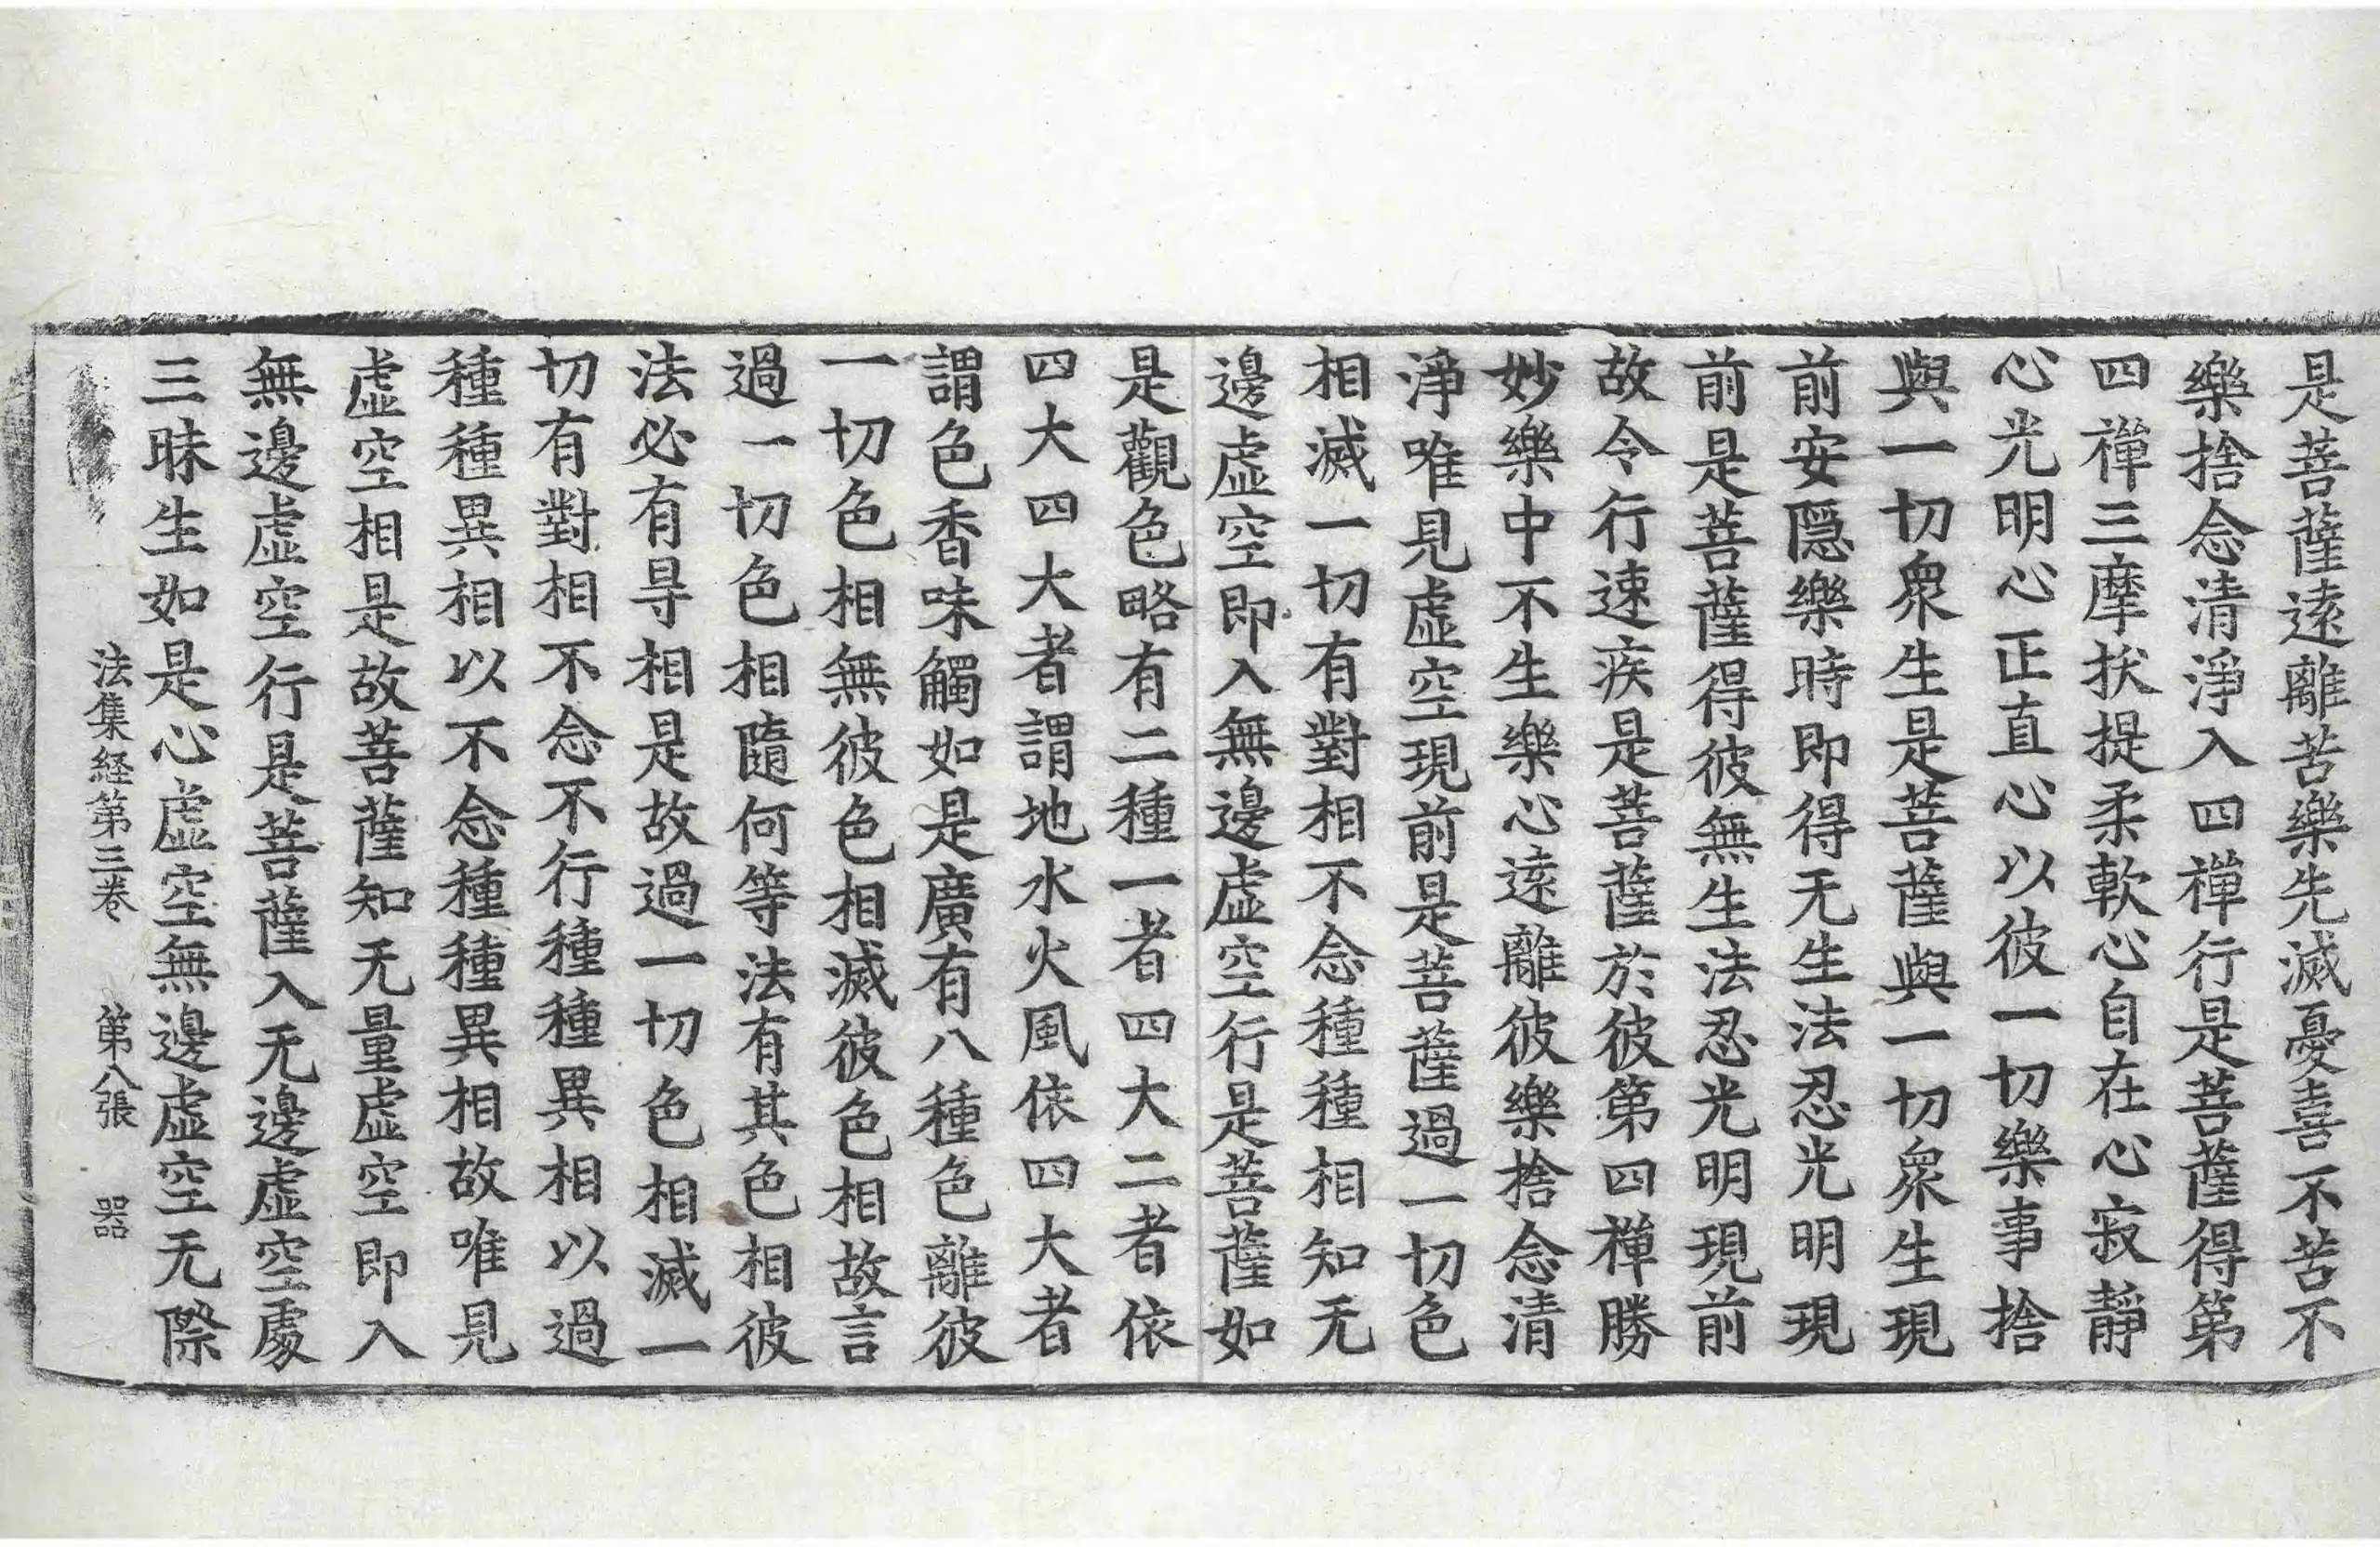 是菩薩遠離苦樂先滅憂喜不苦不
樂捨念清淨入四禪行是菩薩得第
四禪三摩拔提柔軟心自在心寂靜
心光明心正直心以彼一切樂事捨
與一切衆生是菩薩與一切衆生現
前安隱樂時即得无生法忍光明現
前是菩薩得彼無生法忍光明現前
故令行速疾是菩薩於彼第四禪勝
妙樂中不生樂心遠離彼樂捨念清
淨唯見虛空現前是菩薩過一切色
相滅一切有對相不念種種相知无
邊虛空即入無邊虛空行是菩薩如
是觀色略有二種一者四大二者依
四大四大者謂地水火風依四大者
謂色香味觸如是廣有八種色離彼
一切色相無彼色相滅彼色相故言
過一切色相隨何等法有其色相彼
法必有㝵相是故過一切色相滅一
切有對相不念不行種種異相以過
種種異相以不念種種異相故唯見
虛空相是故菩薩知无量虛空即入
無邊虛空行是菩薩入无邊虛空處
三昧生如是心虛空無邊虛空无際
法集経第三卷 第八張 器